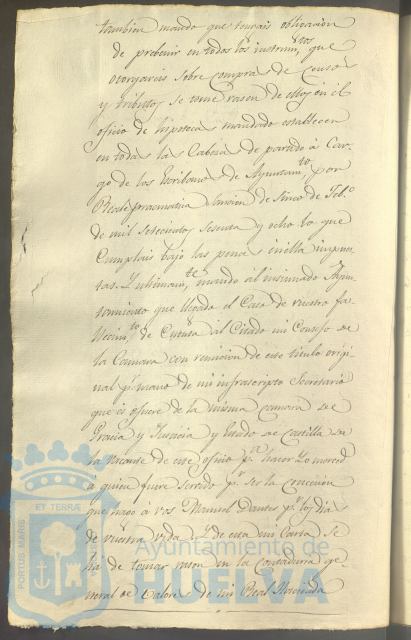 tambien mando que tengais obligacion
de prebenir en todos los instrum.tos que
otorgareis sobre compras de censos
y tributos se tome rason de ellos en el
oficio de hipotecas mandado establecer
en todas las Cabesas de partido à Car-
go de los Escribanos de Ayuntam.to por
Real pracmatica sancion de sinco de Feb.o
de mil setecientos sesenta y ocho lo que
Cumplais bajo las penas en ella impues-
tas. Y ultimam.te mando al insinuado Ayun-
tamiento que llegado el Caso de vuestro fa-
llecim.to de Cuenta al Citado mi Consejo de
la Camara con remision de este titulo origi-
nal p.r mano de mi infrascripto Secretario
que es ò fuere de la misma Camara de
Gracia y Justicia y Estado de Castilla de
la vacante de este oficio p.a hacer Yo merced
a quien fuere servido p.r ser la concecion
que hago à vos Manuel Dantes p.r los dias
de vuestra vida. Y de esta mi Carta se
ha de tomar rason en la contaduria ge-
neral de Valores de mi Real Hacienda
PORTUS MARIS ET TERRAE CUSTODIA
Ayuntamiento de
HUELVA